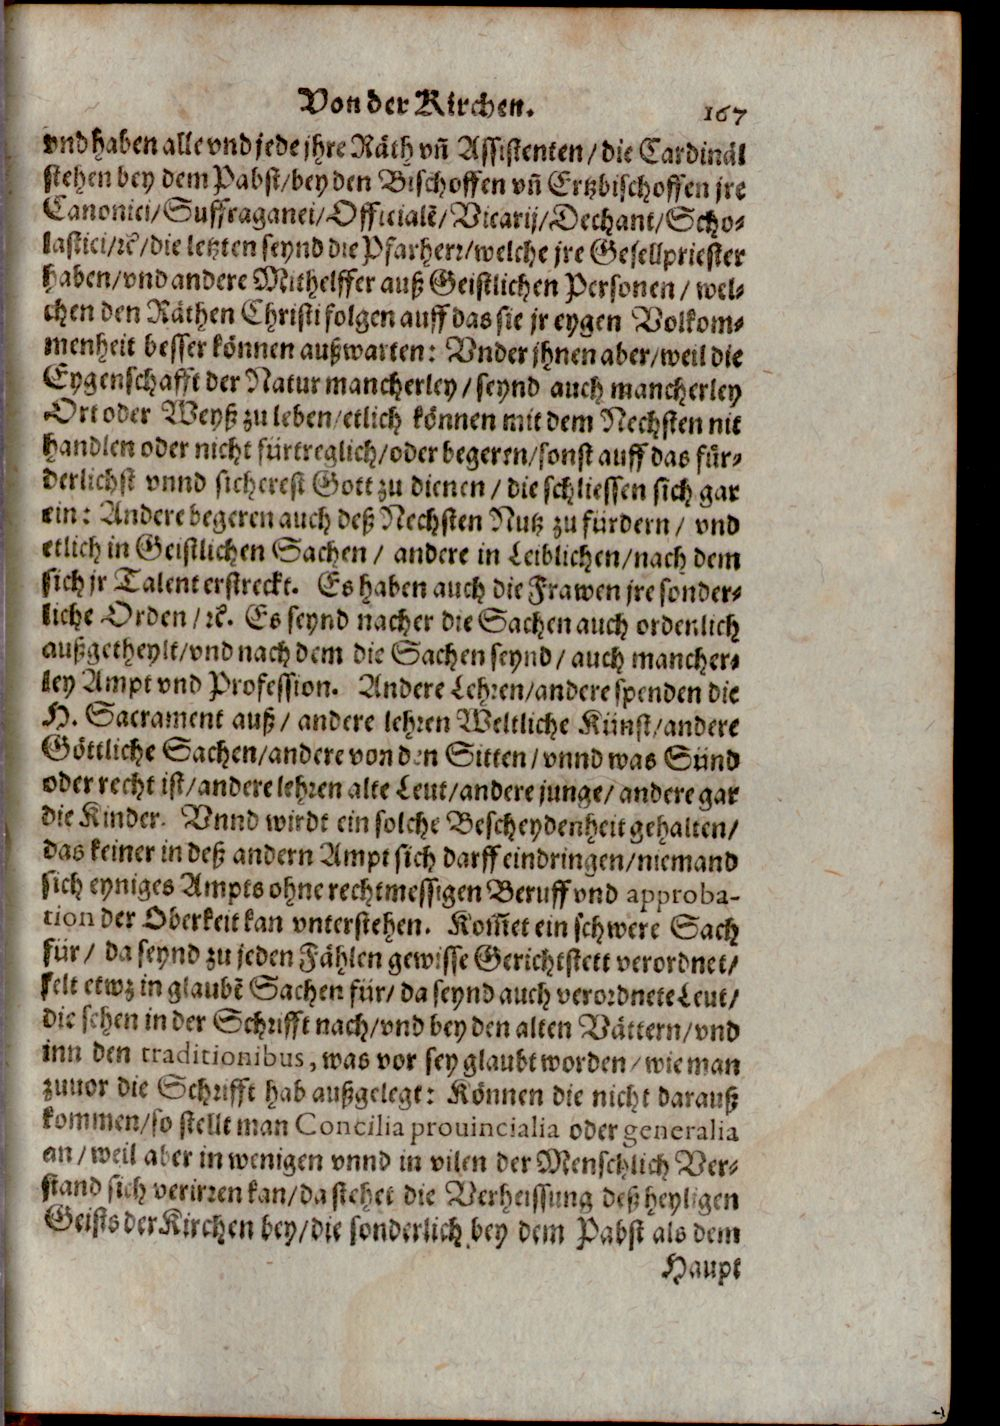 Von der Kirchen.
167
vnd haben alle vnd jede jhre Räth vñ Assistenten / die Cardinäl
stehen bey dem Pabst/bey den Bischoffen vñ Ertzbischoffen jre
Canonici/Suffraganei/Officialẽ/Vicarij/Dechant/Scho-
lastici/ꝛc/die letzten seynd die Pfarherr/welche jre Gesellpriester
haben/vnd andere Mithelffer auß Geistlichen Personen / wel-
chen den Räthen Christi folgen auff das sie jr eygen Volkom-
menheit besser können außwarten: Vnder jhnen aber/weil die
Eygenschafft der Natur mancherley / seynd auch mancherley
Ort oder Weyß zu leben/etlich können mit dem Nechsten nit
handlen oder nicht fürtreglich/oder begeren/sonst auff das für-
derlichst vnnd sicherest Gott zu dienen / die schliessen sich gar
ein: Andere begeren auch deß Nechsten Nutz zu fürdern / vnd
etlich in Geistlichen Sachen / andere in Leiblichen/nach dem
sich jr Talent erstreckt. Es haben auch die Frawen jre sonder-
liche Orden /ꝛc. Es seynd nacher die Sachen auch ordenlich
außgetheylt/vnd nach dem die Sachen seynd / auch mancher-
ley Ampt vnd Profession. Andere Lehren/andere spenden die
H. Sacrament auß / andere lehren Weltliche Künst/andere
Göttliche Sachen/andere von den Sitten / vnnd was Sünd
oder recht ist/andere lehren alte Leut/andere junge/ andere gar
die Kinder. Vnnd wirdt ein solche Bescheydenheit gehalten/
das keiner in deß andern Ampt sich darff eindringen/niemand
sich eyniges Ampts ohne rechtmessigen Beruff vnd approba-
tion der Oberkeit kan vnterstehen. Kom̃et ein schwere Sach
für / da seynd zu jeden Fählen gewisse Gerichtstett verordnet/
felt etwz in glaubẽ Sachen für/ da seynd auch verordnete Leut/
die sehen in der Schrifft nach/vnd bey den alten Vättern/vnd
inn den traditionibus, was vor sey glaubt worden / wie man
zuuor die Schrifft hab außgelegt: Können die nicht darauß
kommen/so stellt man Concilia prouincialia oder generalia
an / weil aber in wenigen vnnd in vilen der Menschlich Ver-
stand sich verirren kan/da stehet die Verheissung deß heyligen
Geists der Kirchen bey/die sonderlich bey dem Pabst als dem
Haupt